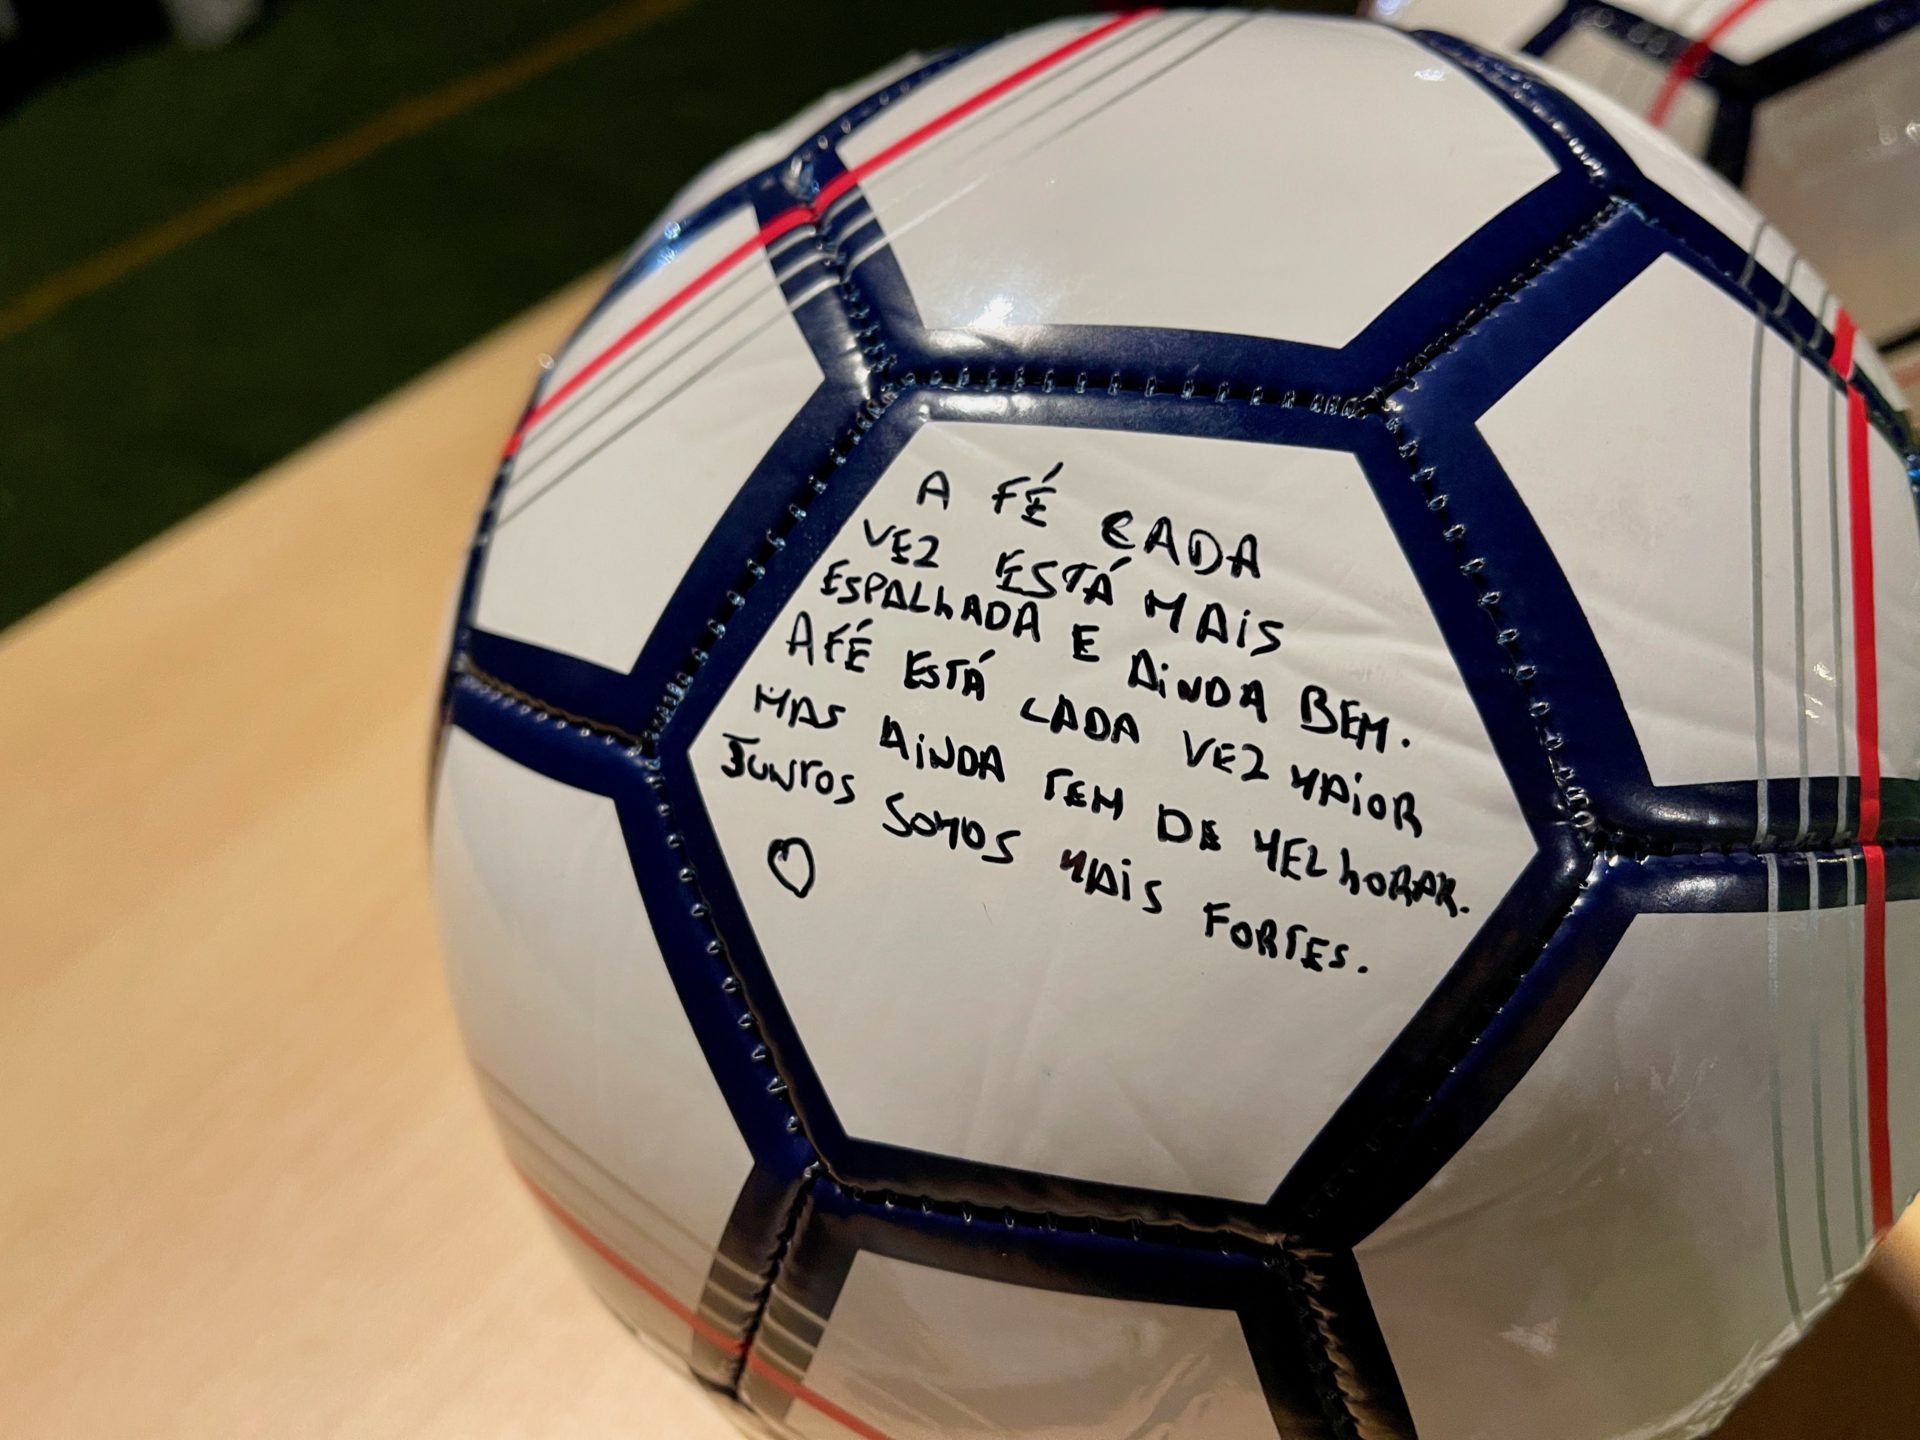 A FÉ CADA
VEZ ESTÁ MAIS
ESPALhADA E AiNDA BEM.
A FÉ ESTÁ CADA VEZ MAiOR
MAS AiNDA TEM DE MELhORAR.
JUNTOS SOMOS MAiS FORTES.